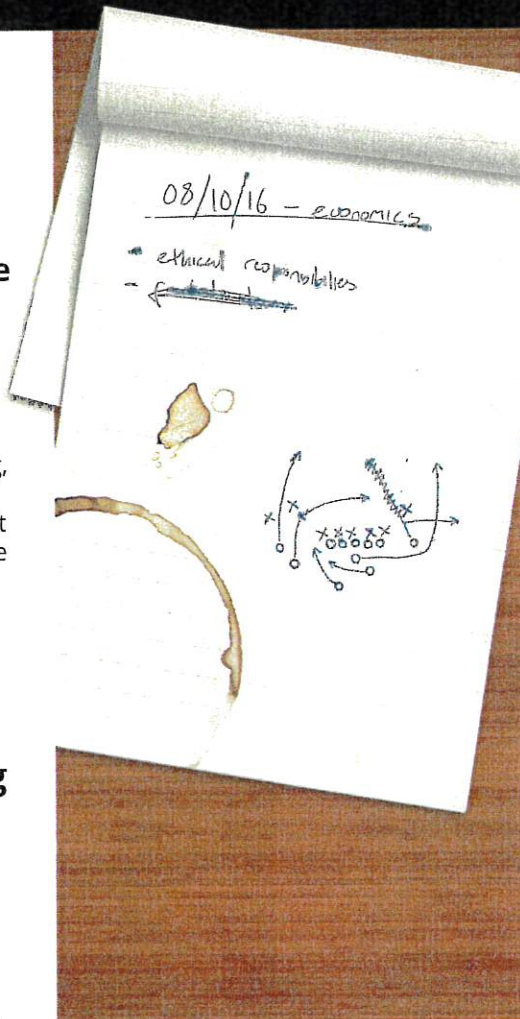 08/10/16 – economics
- ethical responsibilies
-
e
t
e
g